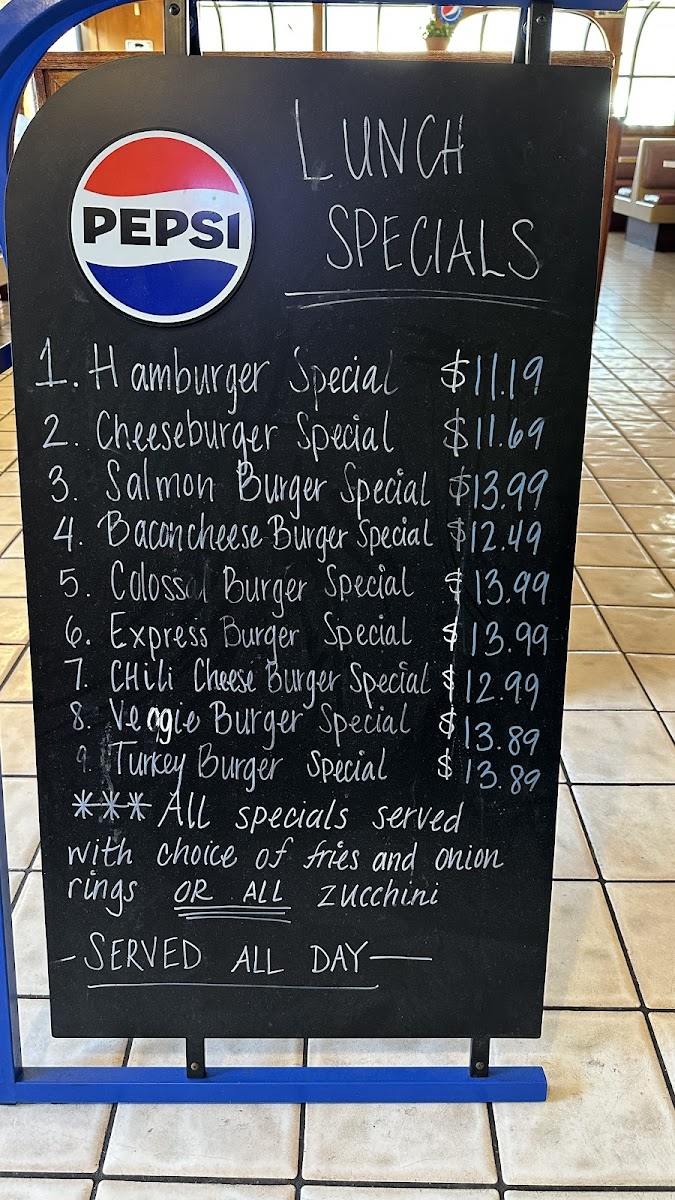 PEPSI
LUNCH
SPECIALS
1. Hamburger Special $11.19
2. Cheeseburger Special $11.69
3. Salmon Burger Special $13.99
4. Baconcheese Burger Special $12.49
5. Colossal Burger Special $13.99
6. Express Burger Special $13.99
7. CHili Cheese Burger Special $12.99
8. Veggie Burger Special $13.89
9. Turkey Burger Special $13.89
*** All specials served
with choice of fries and onion
rings OR ALL zucchini
- SERVED ALL DAY -